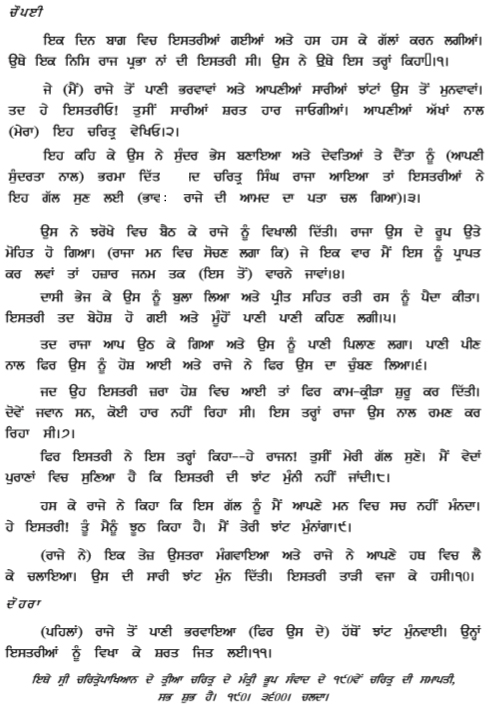 ਚੌਪਈ
ਇਕ ਦਿਨ ਬਾਗ ਵਿਚ ਇਸਤਰੀਆਂ ਗਈਆਂ ਅਤੇ ਹਸ ਹਸ ਕੇ ਗੱਲਾਂ ਕਰਨ ਲਗੀਆਂ।
ਉਥੇ ਇਕ ਨਿਸਿ ਰਾਜ ਪ੍ਰਭਾ ਨਾਂ ਦੀ ਇਸਤਰੀ ਸੀ। ਉਸ ਨੇ ਉਥੇ ਇਸ ਤਰ੍ਹਾਂ ਕਿਹਾ।੧।
ਜੇ (ਮੈਂ) ਰਾਜੇ ਤੋਂ ਪਾਣੀ ਭਰਵਾਵਾਂ ਅਤੇ ਆਪਣੀਆਂ ਸਾਰੀਆਂ ਝਾਂਟਾਂ ਉਸ ਤੋਂ ਮੁਨਵਾਵਾਂ।
ਤਦ ਹੇ ਇਸਤਰੀਓ! ਤੁਸੀਂ ਸਾਰੀਆਂ ਸ਼ਰਤ ਹਾਰ ਜਾਓਗੀਆਂ। ਆਪਣੀਆਂ ਅੱਖਾਂ ਨਾਲ
(ਮੇਰਾ) ਇਹ ਚਰਿਤ੍ਰ ਵੇਖਿਓ।੨।
ਇਹ ਕਹਿ ਕੇ ਉਸ ਨੇ ਸੁੰਦਰ ਭੇਸ ਬਣਾਇਆ ਅਤੇ ਦੇਵਤਿਆਂ ਤੇ ਦੈਂਤਾਂ ਨੂੰ (ਆਪਣੀ
ਸੁੰਦਰਤਾ ਨਾਲ) ਭਰਮਾ ਦਿੱਤ ਦ ਚਰਿਤ੍ਰ ਸਿੰਘ ਰਾਜਾ ਆਇਆ ਤਾਂ ਇਸਤਰੀਆਂ ਨੇ
ਇਹ ਗੱਲ ਸੁਣ ਲਈ (ਭਾਵ: ਰਾਜੇ ਦੀ ਆਮਦ ਦਾ ਪਤਾ ਚਲ ਗਿਆ)।੩।
ਉਸ ਨੇ ਝਰੋਖੇ ਵਿਚ ਬੈਠ ਕੇ ਰਾਜੇ ਨੂੰ ਵਿਖਾਲੀ ਦਿੱਤੀ। ਰਾਜਾ ਉਸ ਦੇ ਰੂਪ ਉਤੇ
ਮੋਹਿਤ ਹੋ ਗਿਆ। (ਰਾਜਾ ਮਨ ਵਿਚ ਸੋਚਣ ਲਗਾ ਕਿ) ਜੇ ਇਕ ਵਾਰ ਮੈਂ ਇਸ ਨੂੰ ਪ੍ਰਾਪਤ
ਕਰ ਲਵਾਂ ਤਾਂ ਹਜ਼ਾਰ ਜਨਮ ਤਕ (ਇਸ ਤੋਂ) ਵਾਰਨੇ ਜਾਵਾਂ।੪।
ਦਾਸੀ ਭੇਜ ਕੇ ਉਸ ਨੂੰ ਬੁਲਾ ਲਿਆ ਅਤੇ ਪ੍ਰੀਤ ਸਹਿਤ ਰਤੀ ਰਸ ਨੂੰ ਪੈਦਾ ਕੀਤਾ।
ਇਸਤਰੀ ਤਦ ਬੇਹੋਸ਼ ਹੋ ਗਈ ਅਤੇ ਮੂੰਹੋਂ ਪਾਣੀ ਪਾਣੀ ਕਹਿਣ ਲਗੀ।੫।
ਤਦ ਰਾਜਾ ਆਪ ਉਠ ਕੇ ਗਿਆ ਅਤੇ ਉਸ ਨੂੰ ਪਾਣੀ ਪਿਲਾਣ ਲਗਾ। ਪਾਣੀ ਪੀਣ
ਨਾਲ ਫਿਰ ਉਸ ਨੂੰ ਹੋਸ਼ ਆਈ ਅਤੇ ਰਾਜੇ ਨੇ ਫਿਰ ਉਸ ਦਾ ਚੁੰਬਣ ਲਿਆ।੬।
ਜਦ ਉਹ ਇਸਤਰੀ ਜ਼ਰਾ ਹੋਸ਼ ਵਿਚ ਆਈ ਤਾਂ ਫਿਰ ਕਾਮ-ਕ੍ਰੀੜਾ ਸ਼ੁਰੂ ਕਰ ਦਿੱਤੀ।
ਦੋਵੇਂ ਜਵਾਨ ਸਨ, ਕੋਈ ਹਾਰ ਨਹੀਂ ਰਿਹਾ ਸੀ। ਇਸ ਤਰ੍ਹਾਂ ਰਾਜਾ ਉਸ ਨਾਲ ਰਮਣ ਕਰ
ਰਿਹਾ ਸੀ।੭।
ਫਿਰ ਇਸਤਰੀ ਨੇ ਇਸ ਤਰ੍ਹਾਂ ਕਿਹਾ--ਹੇ ਰਾਜਨ! ਤੁਸੀਂ ਮੇਰੀ ਗੱਲ ਸੁਣੋ। ਮੈਂ ਵੇਦਾਂ
ਪੁਰਾਣਾਂ ਵਿਚ ਸੁਣਿਆ ਹੈ ਕਿ ਇਸਤਰੀ ਦੀ ਝਾਂਟ ਮੁੰਨੀ ਨਹੀਂ ਜਾਂਦੀ।੮।
ਹਸ ਕੇ ਰਾਜੇ ਨੇ ਕਿਹਾ ਕਿ ਇਸ ਗੱਲ ਨੂੰ ਮੈਂ ਆਪਣੇ ਮਨ ਵਿਚ ਸਚ ਨਹੀਂ ਮੰਨਦਾ।
ਹੇ ਇਸਤਰੀ! ਤੂੰ ਮੈਨੂੰ ਝੂਠ ਕਿਹਾ ਹੈ। ਮੈਂ ਤੇਰੀ ਝਾਂਟ ਮੁੰਨਾਂਗਾ।੯।
(ਰਾਜੇ ਨੇ) ਇਕ ਤੇਜ਼ ਉਸਤਰਾ ਮੰਗਵਾਇਆ ਅਤੇ ਰਾਜੇ ਨੇ ਆਪਣੇ ਹਥ ਵਿਚ ਲੈ
ਕੇ ਚਲਾਇਆ। ਉਸ ਦੀ ਸਾਰੀ ਝਾਂਟ ਮੁੰਨ ਦਿੱਤੀ। ਇਸਤਰੀ ਤਾੜੀ ਵਜਾ ਕੇ ਹਸੀ।੧੦।
ਦੋਹਰਾ
(ਪਹਿਲਾਂ) ਰਾਜੇ ਤੋਂ ਪਾਣੀ ਭਰਵਾਇਆ (ਫਿਰ ਉਸ ਦੇ) ਹੱਥੋਂ ਝਾਂਟ ਮੁੰਨਵਾਈ। ਉਨ੍ਹਾਂ
ਇਸਤਰੀਆਂ ਨੂੰ ਵਿਖਾ ਕੇ ਸ਼ਰਤ ਜਿਤ ਲਈ।੧੧।
ਇਥੇ ਸ੍ਰੀ ਚਰਿਤ੍ਰੋਪਾਖਿਆਨ ਦੇ ਤ੍ਰੀਆ ਚਰਿਤ੍ਰ ਦੇ ਮੰਤ੍ਰੀ ਭੂਪ ਸੰਵਾਦ ਦੇ ੧੯੦ਵੇਂ ਚਰਿਤ੍ਰ ਦੀ ਸਮਾਪਤੀ,
ਸਭ ਸ਼ੁਭ ਹੈ। ੧੯੦। ੩੬੦੦। ਚਲਦਾ।